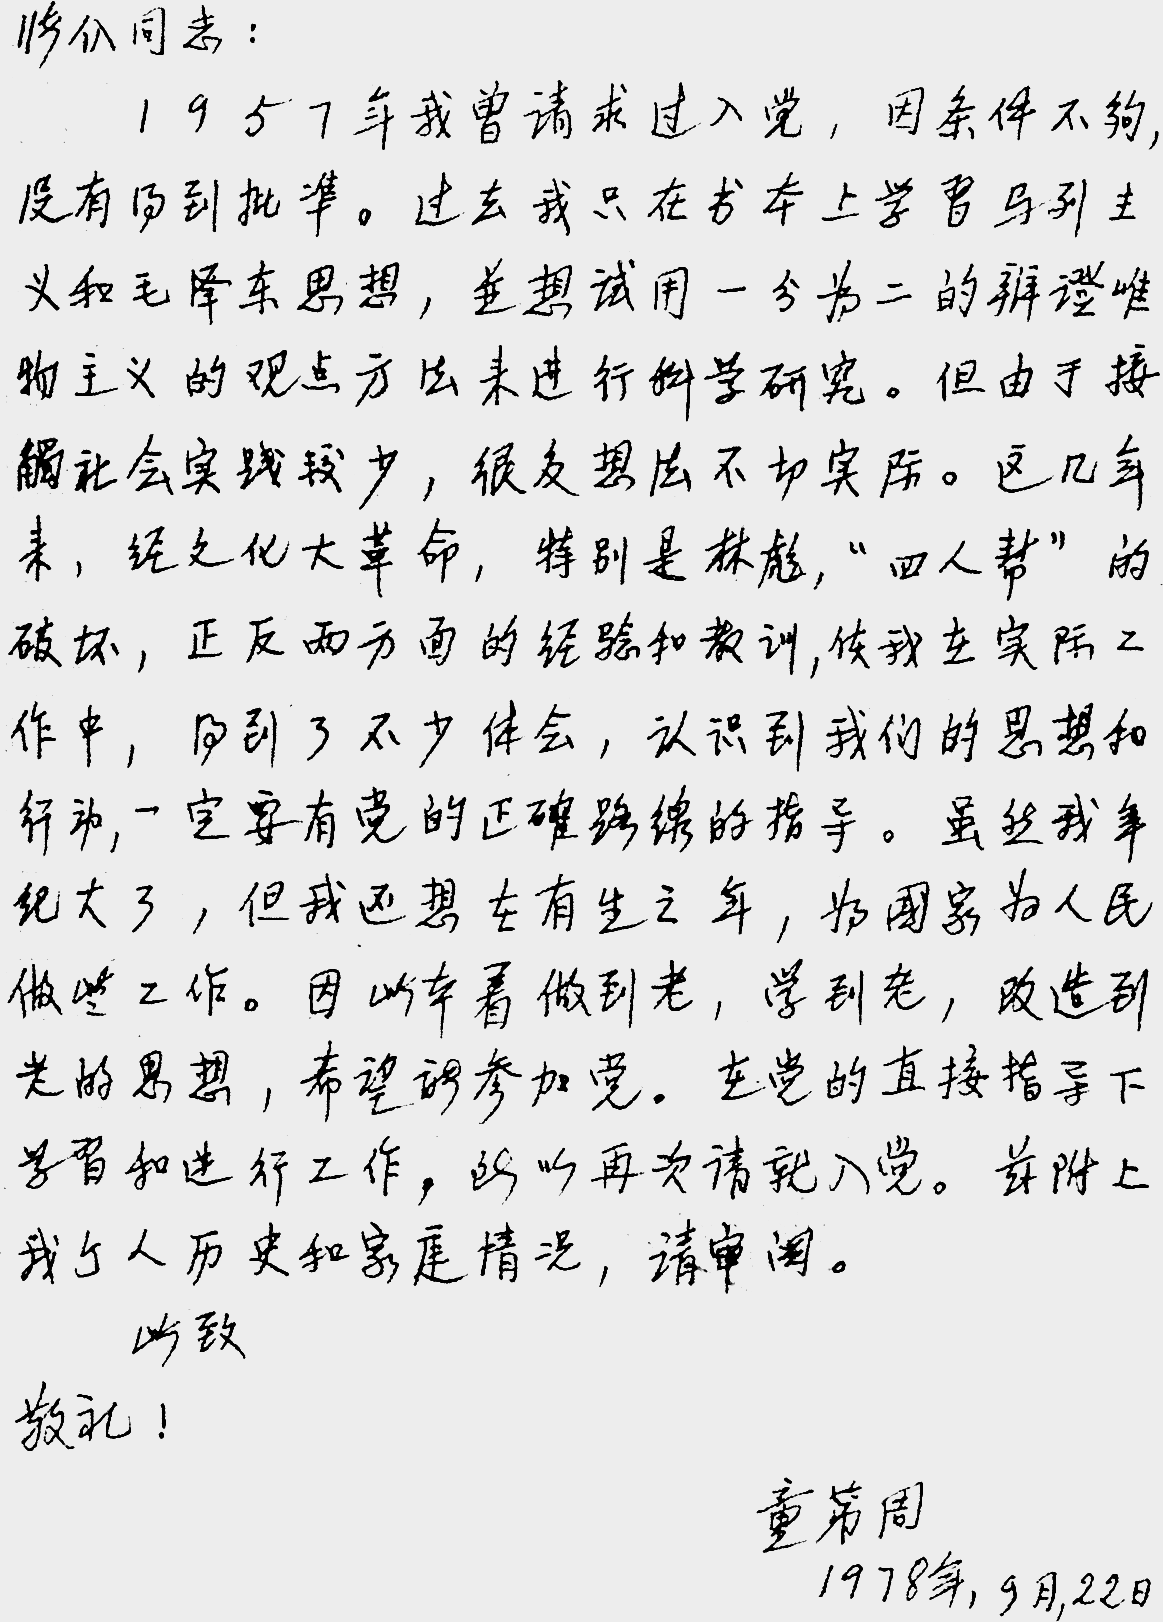 同志：
1957年我曾请求过入党，因条件不夠，
没有得到批准。过去我只在书本上学習马列主
义和毛泽东思想，並想试用一分为二的辩證唯
物主义的观点方法来进行科学研究。但由于接
觸社会实践较少，很多想法不切实际。这几年
来，经文化大革命，特别是林彪，“四人帮”的
破坏，正反两方面的经验和教训，使我在实际工
作中，得到了不少体会，认识到我们的思想和
行动，一定要有党的正確路線的指导。虽然我年
纪大了，但我还想在有生之年，为國家为人民
做些工作。因此本着做到老，学到老，改造到
老的思想，希望能参加党。在党的直接指导下
学習和进行工作，所以再次请求入党。兹附上
我个人历史和家庭情况，请审阅。
此致
敬礼！
童第周
1978年，9月，22日